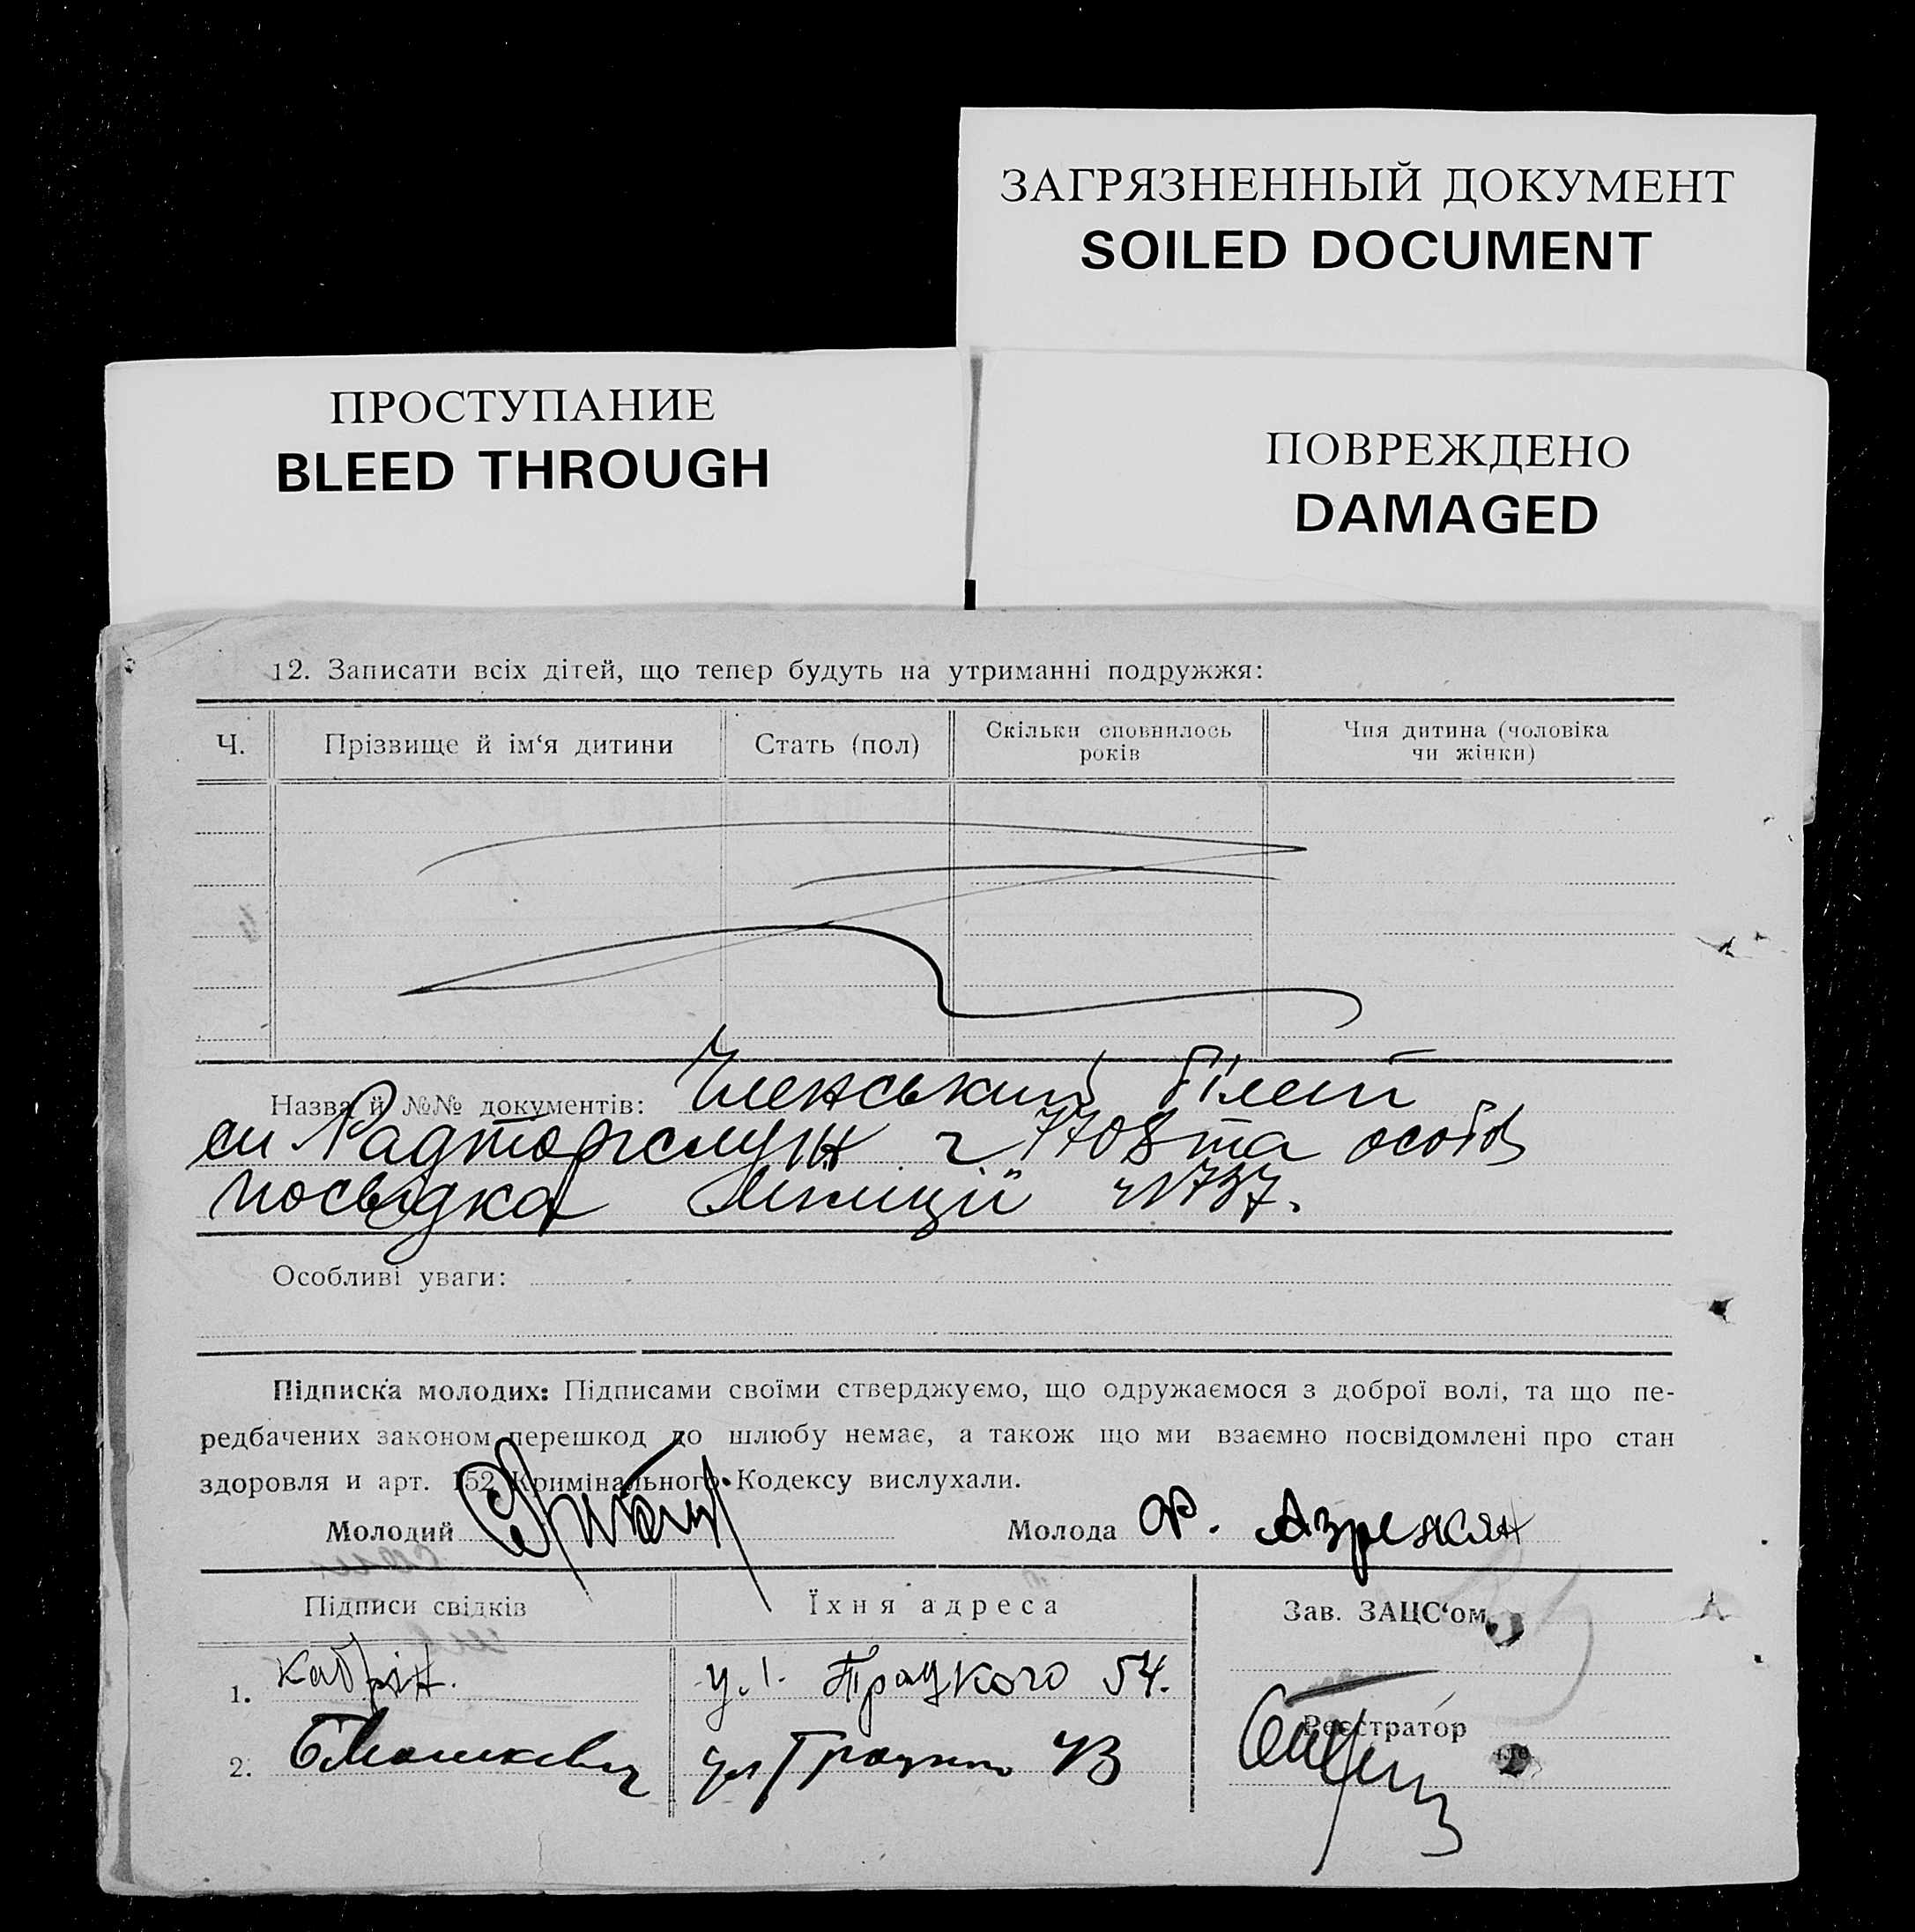 ЗАГРЯЗНЕННЫЙ ДОКУМЕНТ
SOILED DOCUMENT
ПРОСТУПАНИЕ
BLEED THROUGH
ПОВРЕЖДЕНО
DAMAGED
12. Записати всіх дітей, що тепер будуть на утриманні подружжя:
Ч.
Прізвище й ім‘я дитини
Стать (пол)
Скільки сповнилось
років
Чия дитина (чоловіка
чи жінки)
Назва й №№ документів: Членський білет
сп Радторгслуж ч 7708 та особов
посвідка міліції ч 1737.
Особливі уваги:
Підписка молодих: Підписами своїми стверджуємо, що одружаємося з доброї волі, та що пе-
редбачених законом перешкод до шлюбу немає, а також що ми взаємно посвідомлені про стан
здоровля и арт. 152 Кримінального Кодексу вислухали.
Молодий
Молода Ф.
Підписи свідків
Їхня адреса
Зав. ЗАЦС‘ом
1.
ул. Троцкого 54.
Реєстратор
2.
ул Троцкого 43